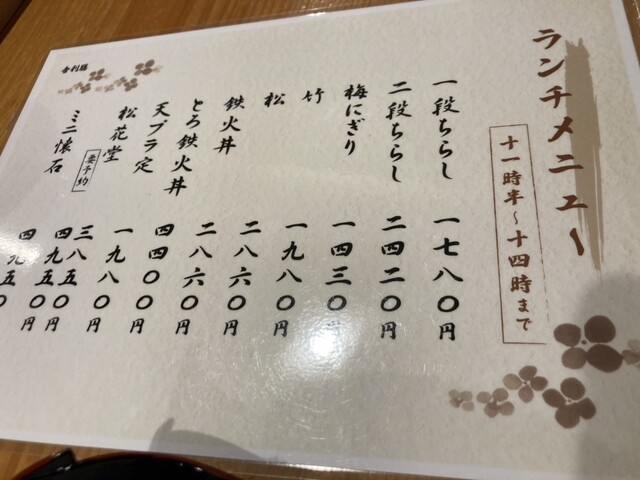 ランチメニュー
十一時半〜十四時まで
一段ちらし 一七八〇円
二段ちらし 二四二〇円
梅にぎり 一四三〇円
竹 一九八〇円
松 二八六〇円
鉄火丼 二八六〇円
とろ鉄火丼 四四〇〇円
天プラ定 一九八〇円
松花堂 要予約 三八五〇円
四九五〇円
ミニ懐石 四九五〇
舎利膳